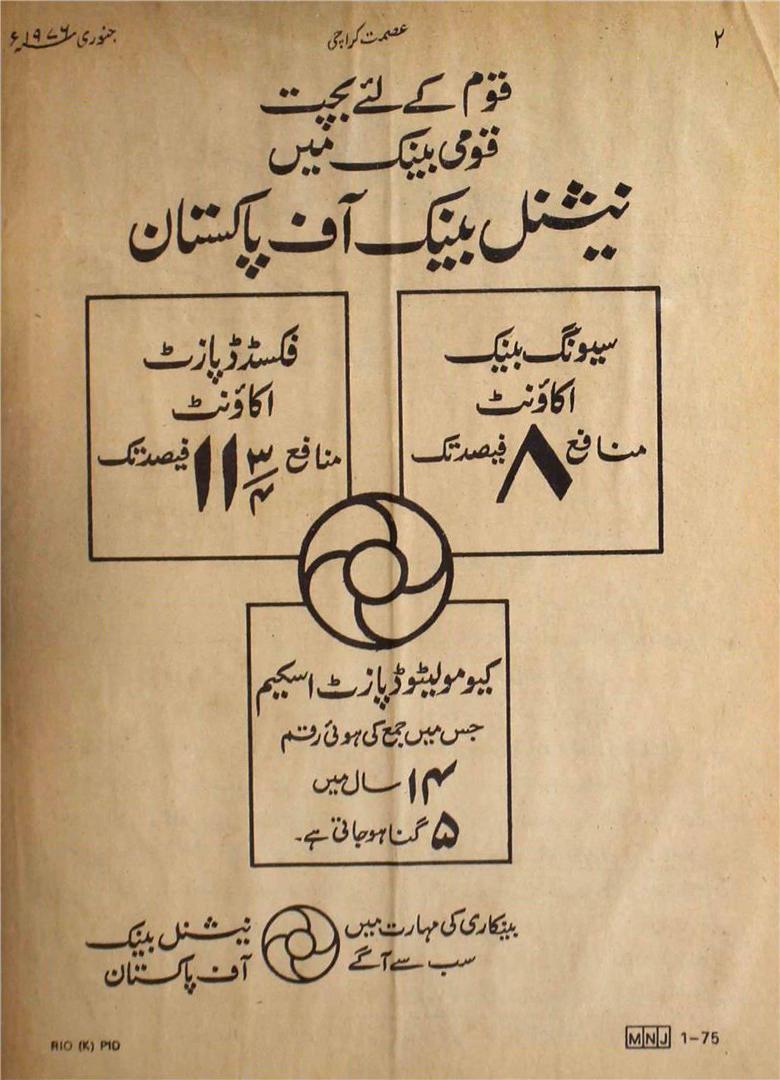 ۲
عصمت کراچی
جنوری ۱۹۷۶ء
قوم کے لئے بچت
قومی بینک میں
نیشنل بینک آف پاکستان
سیونگ بینک
اکاؤنٹ
منافع ۸ فیصد تک
فکسڈ ڈپازٹ
اکاؤنٹ
منافع ۱۱ ۳/۴ فیصد تک
کیومولیٹو ڈپازٹ اسکیم
جس میں جمع کی ہوئی رقم
۱۴ سال میں
۵ گنا ہوجاتی ہے۔
بینکاری کی مہارت میں
سب سے آگے
نیشنل بینک
آف پاکستان
RIO (K) PID
MNJ 1-75